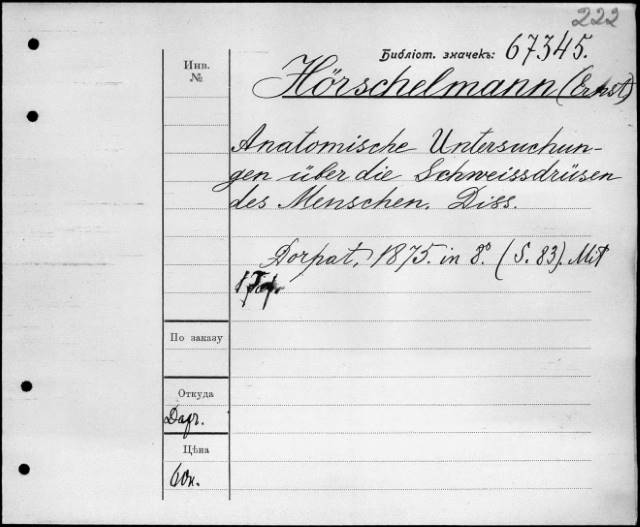 222
Библіот. значекъ: 67345.
Инв.
№
Hörschelmann (Ernst)
Anatomische Untersuchun-
gen über die Schweissdrüsen
des Menschen. Diss.
Dorpat, 1875. in 8º. (S. 83). Mit
1 Taf.
По заказу
Откуда
Цѣна
60к.